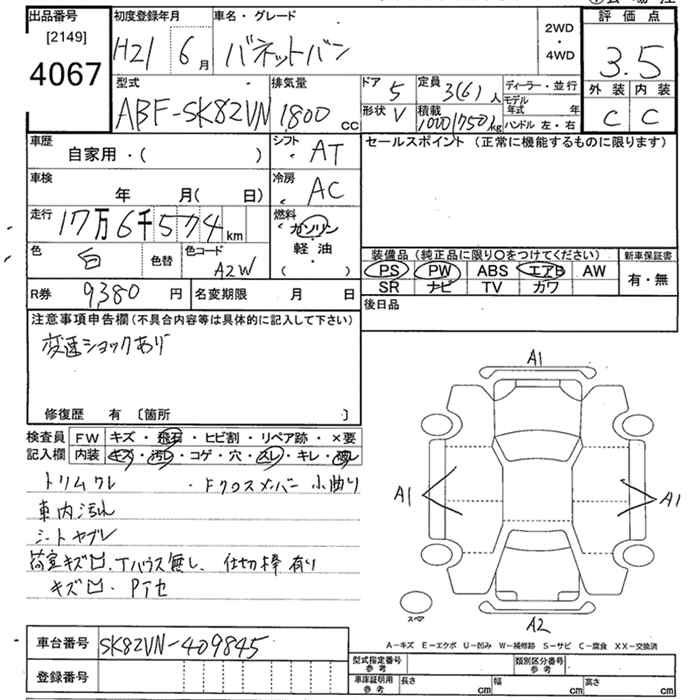 出品番号 初度登録年月 車名・グレード 評価点
[2149]
4067
H21 6月 バネットバン 2WD・4WD 3.5
外装 内装
C C
型式 排気量 ドア 5 定員 3(6)人 ディーラー・並行
ABF-SK82VN 1800cc 形状 V 積載 1000(750)kg モデル年式 年
ハンドル 左・右
車歴 シフト AT セールスポイント (正常に機能するものに限ります)
自家用・( )
車検 冷房 AC
年 月( 日)
走行 17万6千574km 燃料 ガソリン・軽油
( )
色 白 色替 色コード A2W
装備品 (純正品に限り○をつけてください) 新車保証書
PS PW ABS エアB AW 有・無
SR ナビ TV カワ
R券 9380円 名変期限 月 日 後日品
注意事項申告欄(不具合内容等は具体的に記入して下さい)
変速ショックあり
修復歴 有 〔箇所 〕
検査員 FW キズ・飛石・ヒビ割・リペア跡・×要
記入欄 内装 キズ・汚レ・コゲ・穴・スレ・キレ・破レ
トリムワレ ・Fクロスメンバー 小曲り
車内汚れ
シートヤブレ
荷室キズ凹、Tハウス無し、仕切枠有り
キズ凹・
A1
A1 A1
スペア
A2
A-キズ E-エクボ U-凹み W-補修跡 S-サビ C-腐食 XX-交換済
車台番号 SK82VN-409845
登録番号
型式指定番号 参考 類別区分番号 参考
車庫証明用 参考 長さ cm 幅 cm 高さ cm